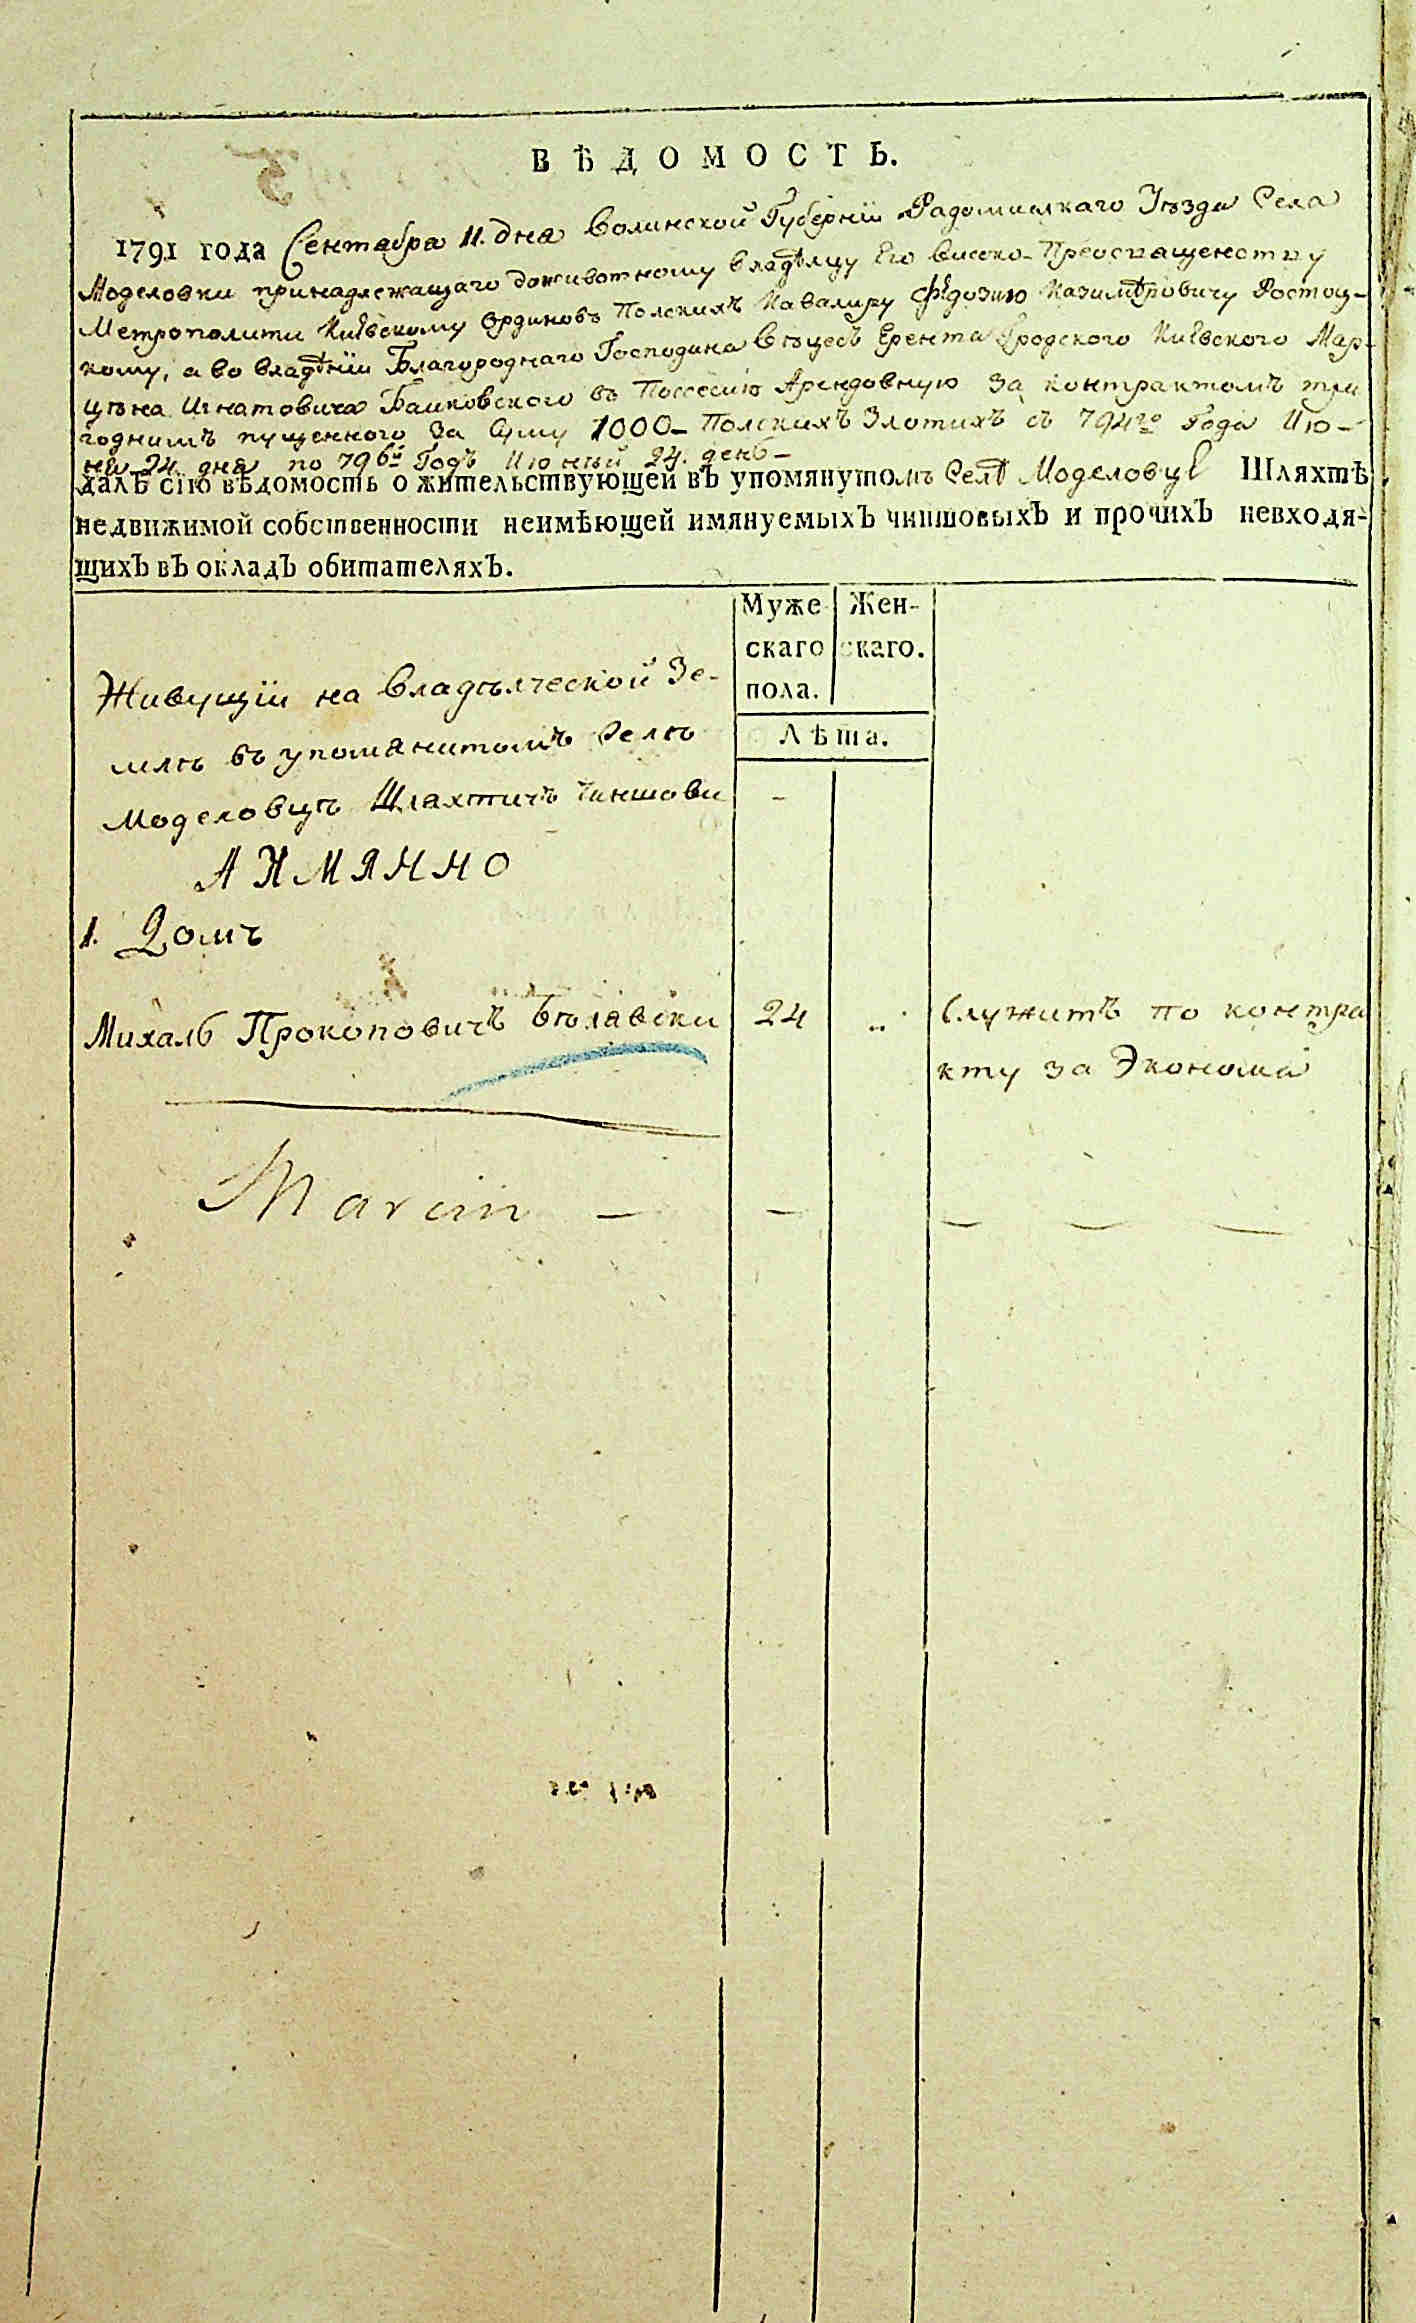 ВѢДОМОСТЬ.
1791 года Сентабра 11. дня Волинской Губернїи Радомислкаго Уѣзда Села
Моделовки принадлежащаго доживотному владѣлцу Его високо-Преосвященству
Метрополити Киевскому Ординовъ Полскихъ Кавалиру Фѣдозию Казимѣровичу Ростоц-
кому, а во владѣнїи Благороднаго Господина Вѣцесъ Ерента Гродского Киевского Мар-
цѣна Игнатовича Банковского въ Поссесию Арендовную за контрактомъ три
годнимъ пущенного за Суму 1000- Полскихъ Злотихъ съ 794го Года Ию-
ня 24. дня по 796й Годъ Июный 24. денб-
далъ сїю вѣдомость о жительствующей въ упомянутомъ Селѣ Моделовцѣ Шляхтѣ
недвижимой собственности неимѣющей имянуемыхъ чиншовыхъ и прочихъ невходя-
щихъ въ окладъ обитателяхъ.
Муже Жен-
скаго скаго.
пола.
Лѣта.
Живущїи на владѣлческой Зе-
млѣ въ упоманитомъ Селѣ
Моделовцѣ Шлахтичъ Чиншови -
АИМЯННО
1. Домъ
Михалб Прокоповичъ Бѣлавски 24 .. Служитъ по контра
кту за Эконома
Marcin - - - - -